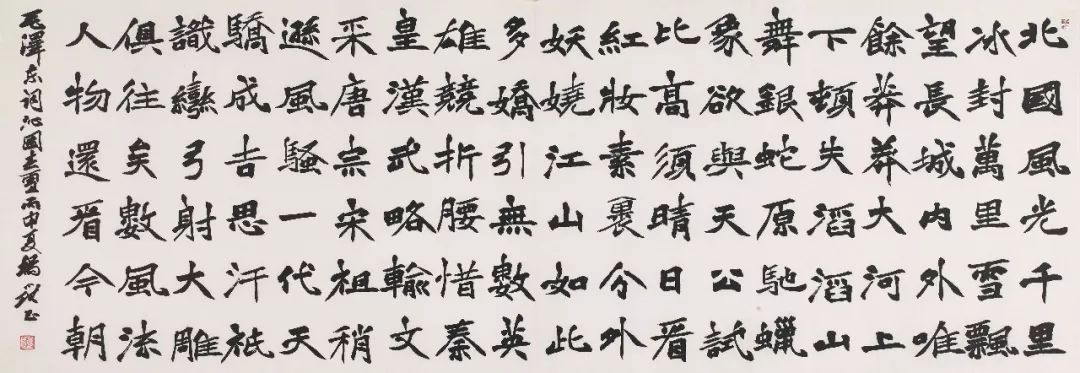 北國風光千里
冰封萬里雪飄
望長城內外唯
餘莽莽大河上
下頓失滔滔山
舞銀蛇原馳蠟
象欲與天公試
比高須晴日看
紅妝素裹分外
妖嬈江山如此
多嬌引無數英
雄競折腰惜秦
皇漢武略輸文
采唐宗宋祖稍
遜風騷一代天
驕成吉思汗祇
識彎弓射大雕
俱往矣數風流
人物還看今朝
毛澤东詞沁園春雪丙申夏